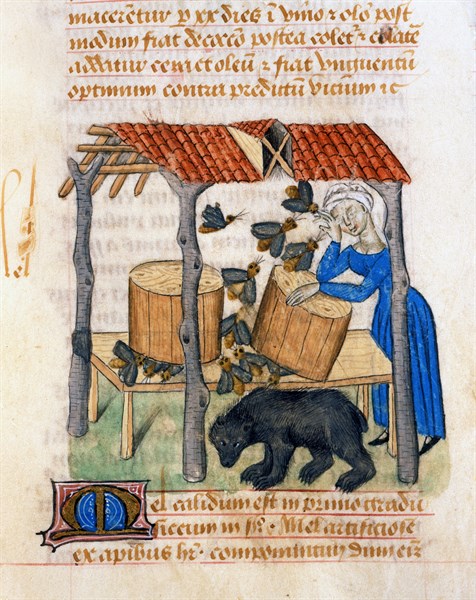 macerentur p xx dies i vino et oleo post
modum fiat decoctio postea coletur et colate
addatur cera et oleum et fiat vnguentum
optimum contra predictum vicium ic
Mel
Mel calidum est in primo gradu
siccum in ijº. Mel artificiose
ex apibus hr. componitur dum eiz